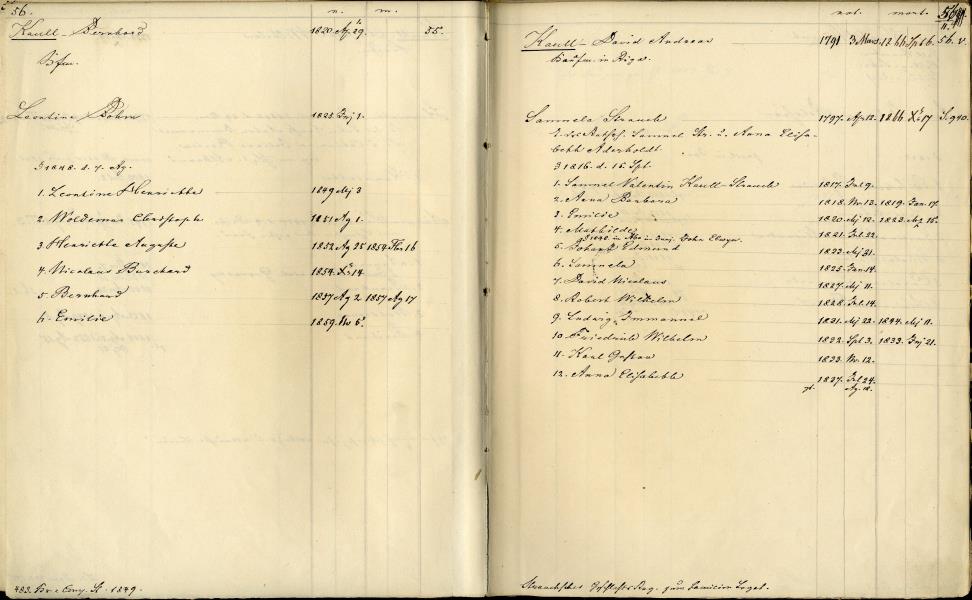 56.
n. m.
Kaull - Bernhard 1820 Ap 29. 55.
Leontine Böhm 1825 Juj 1.
1848. d. 7. Ag.
1. Leontine Henriette 1849 Mj 3
2. Woldemar Christoph 1851 Ag 1.
3 Henriette Auguste 1852 Ag 25 1854 Fbr. 16
4. Nicolaus Burchard 1854. Xbr 14
5. Bernhard 1857 Ag 2 1857 Ag 17
6. Emilie 1859. No 5.
483. 1849.
nat. mort. 56
Kaull - David Andreas 1791 3 Mart. 1866 Spt 6. 56. v.
Kaufm. in Riga.
Samuela Strauch 1797. Ap 12. 1866 Xbr 17 S. 940.
Samuel Str. u. Anna Elisa-
beth Aderholdt.
1816. d. 16 Spt.
1. Samuel Valentin Kaull-Strauch 1817. Jul 9.
2. Anna Barbara 1818. Nv. 13. 1819. Jan. 17.
3. Emilie 1820. Mj 12. 1823. Mz 16.
4. Mathilde 1821. Jul. 22.
5. Johann Edmund 1823. Mj 31.
6. Samuela 1825. Jan. 14.
7. David Nicolaus 1827. Mj 11.
8. Robert Wilhelm 1828. Jul. 14.
9. Ludwig Immanuel 1831. Mj 22. 1844. Mj 11.
10. Friedrich Wilhelm 1832. Spt 3. 1833. Juj 21.
11. Karl Gustav 1833. Nv. 12.
12. Anna Elisabeth 1837. Jul 24.
gt. Ag. 12.